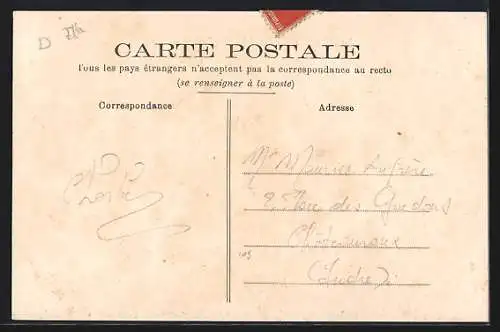 CARTE POSTALE
Tous les pays étrangers n'acceptent pas la correspondance au recto
(se renseigner à la poste)
Correspondance
Adresse
Mr Maurice
des
Châteauroux
(Indre)